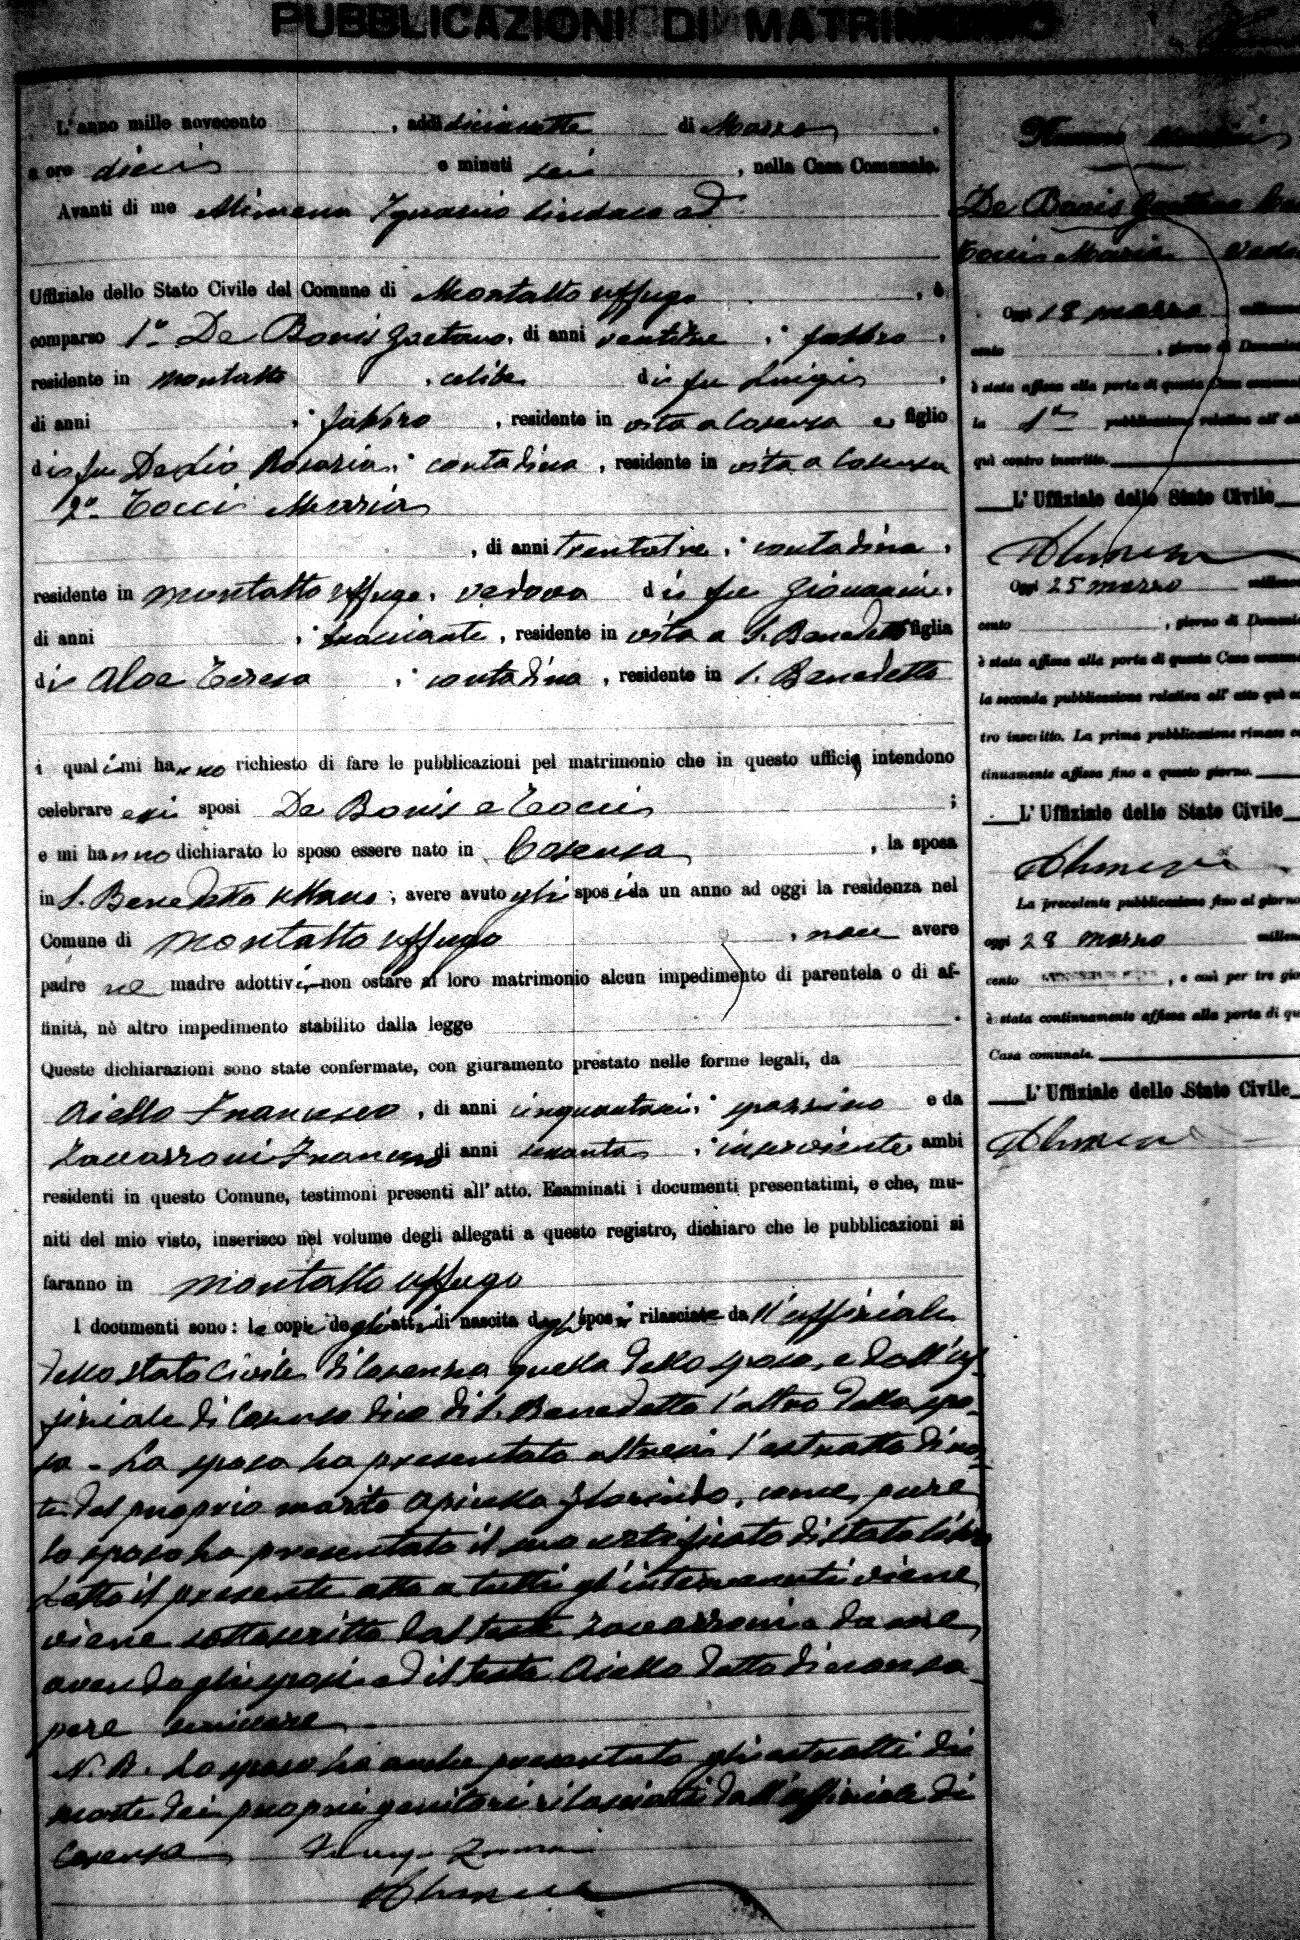 PUBBLICAZIONI DI MATRIMONIO
L'anno mille novecento , addì diciasette di Marzo ,
a ore dieci e minuti sei , nella Casa Comunale.
Avanti di me Alimena Ignazio Sindaco ed
Uffiziale dello Stato Civile del Comune di Montalto Uffugo , è
comparso 1º De Bonis Gaetano, di anni ventitre ; fabbro ,
residente in Montalto , celibe di fu Luigi ,
di anni ; fabbro , residente in vita a Cosenza e figlio
di fu De Lio Rosaria ; contadina , residente in vita a Cosenza
2º Tocci Maria
, di anni trentatre ; contadina ,
residente in Montalto Uffugo , vedova di fu Giovanni ,
di anni ; bracciante , residente in vita a S. Benedetto figlia
di Aloe Teresa ; contadina , residente in S. Benedetto
i quali mi hanno richiesto di fare le pubblicazioni pel matrimonio che in questo ufficio intendono
celebrare essi sposi De Bonis e Tocci ;
e mi hanno dichiarato lo sposo essere nato in Cosenza , la sposa
in S. Benedetto Ullano ; avere avuto gli sposi da un anno ad oggi la residenza nel
Comune di Montalto Uffugo , non avere
padre nè madre adottivi, non ostare al loro matrimonio alcun impedimento di parentela o di af-
finità, nè altro impedimento stabilito dalla legge .
Queste dichiarazioni sono state confermate, con giuramento prestato nelle forme legali, da
Aiello Francesco , di anni cinquantasei ; spazzino e da
Zavarroni Francesco di anni sessanta ; inserviente ambi
residenti in questo Comune, testimoni presenti all'atto. Esaminati i documenti presentatimi, e che, mu-
niti del mio visto, inserisco nel volume degli allegati a questo registro, dichiaro che le pubblicazioni si
faranno in Montalto Uffugo
I documenti sono: le copie degli atti di nascita degli sposi rilasciate da l'uffiziale
dello stato Civile di Cosenza quella dello sposo, e dall'uf-
fiziale di Cosenza dico di S. Benedetto l'altro della spo-
sa - La sposa ha presentato altresì l'estratto di mor-
te del proprio marito Florindo, come pure
lo sposo ha presentato il suo certificato di stato libero
Letto il presente atto a tutti gl'intervenuti viene
viene sottoscritto dal teste Zavarroni e da me
avendo gli sposi ed il teste Aiello detto di non sa-
pere scrivere
N. B. Lo sposo ha anche presentato gli estratti di
morte dei propri genitori rilasciati dall'uffiziale di
Cosenza
Alimena
De Bonis Gaetano
Tocci Maria
Oggi 18 marzo
cento , giorno di
è stata affissa alla porta di questa Casa
la 1ª pubblicazione relativa all'
quì contro inscritto.
L'Uffiziale dello Stato Civile
Alimena
Oggi 25 marzo
cento , giorno di
è stata affissa alla porta di questa Casa
la seconda pubblicazione relativa all'atto quì
tro inscritto. La prima pubblicazione rimase
tinuamente affissa fino a questo giorno.
L'Uffiziale dello Stato Civile
Alimena
La precedente pubblicazione fino al giorno
oggi 28 marzo
cento , e così per tre
è stata continuamente affissa alla porta di
Casa comunale.
L'Uffiziale dello Stato Civile
Alimena